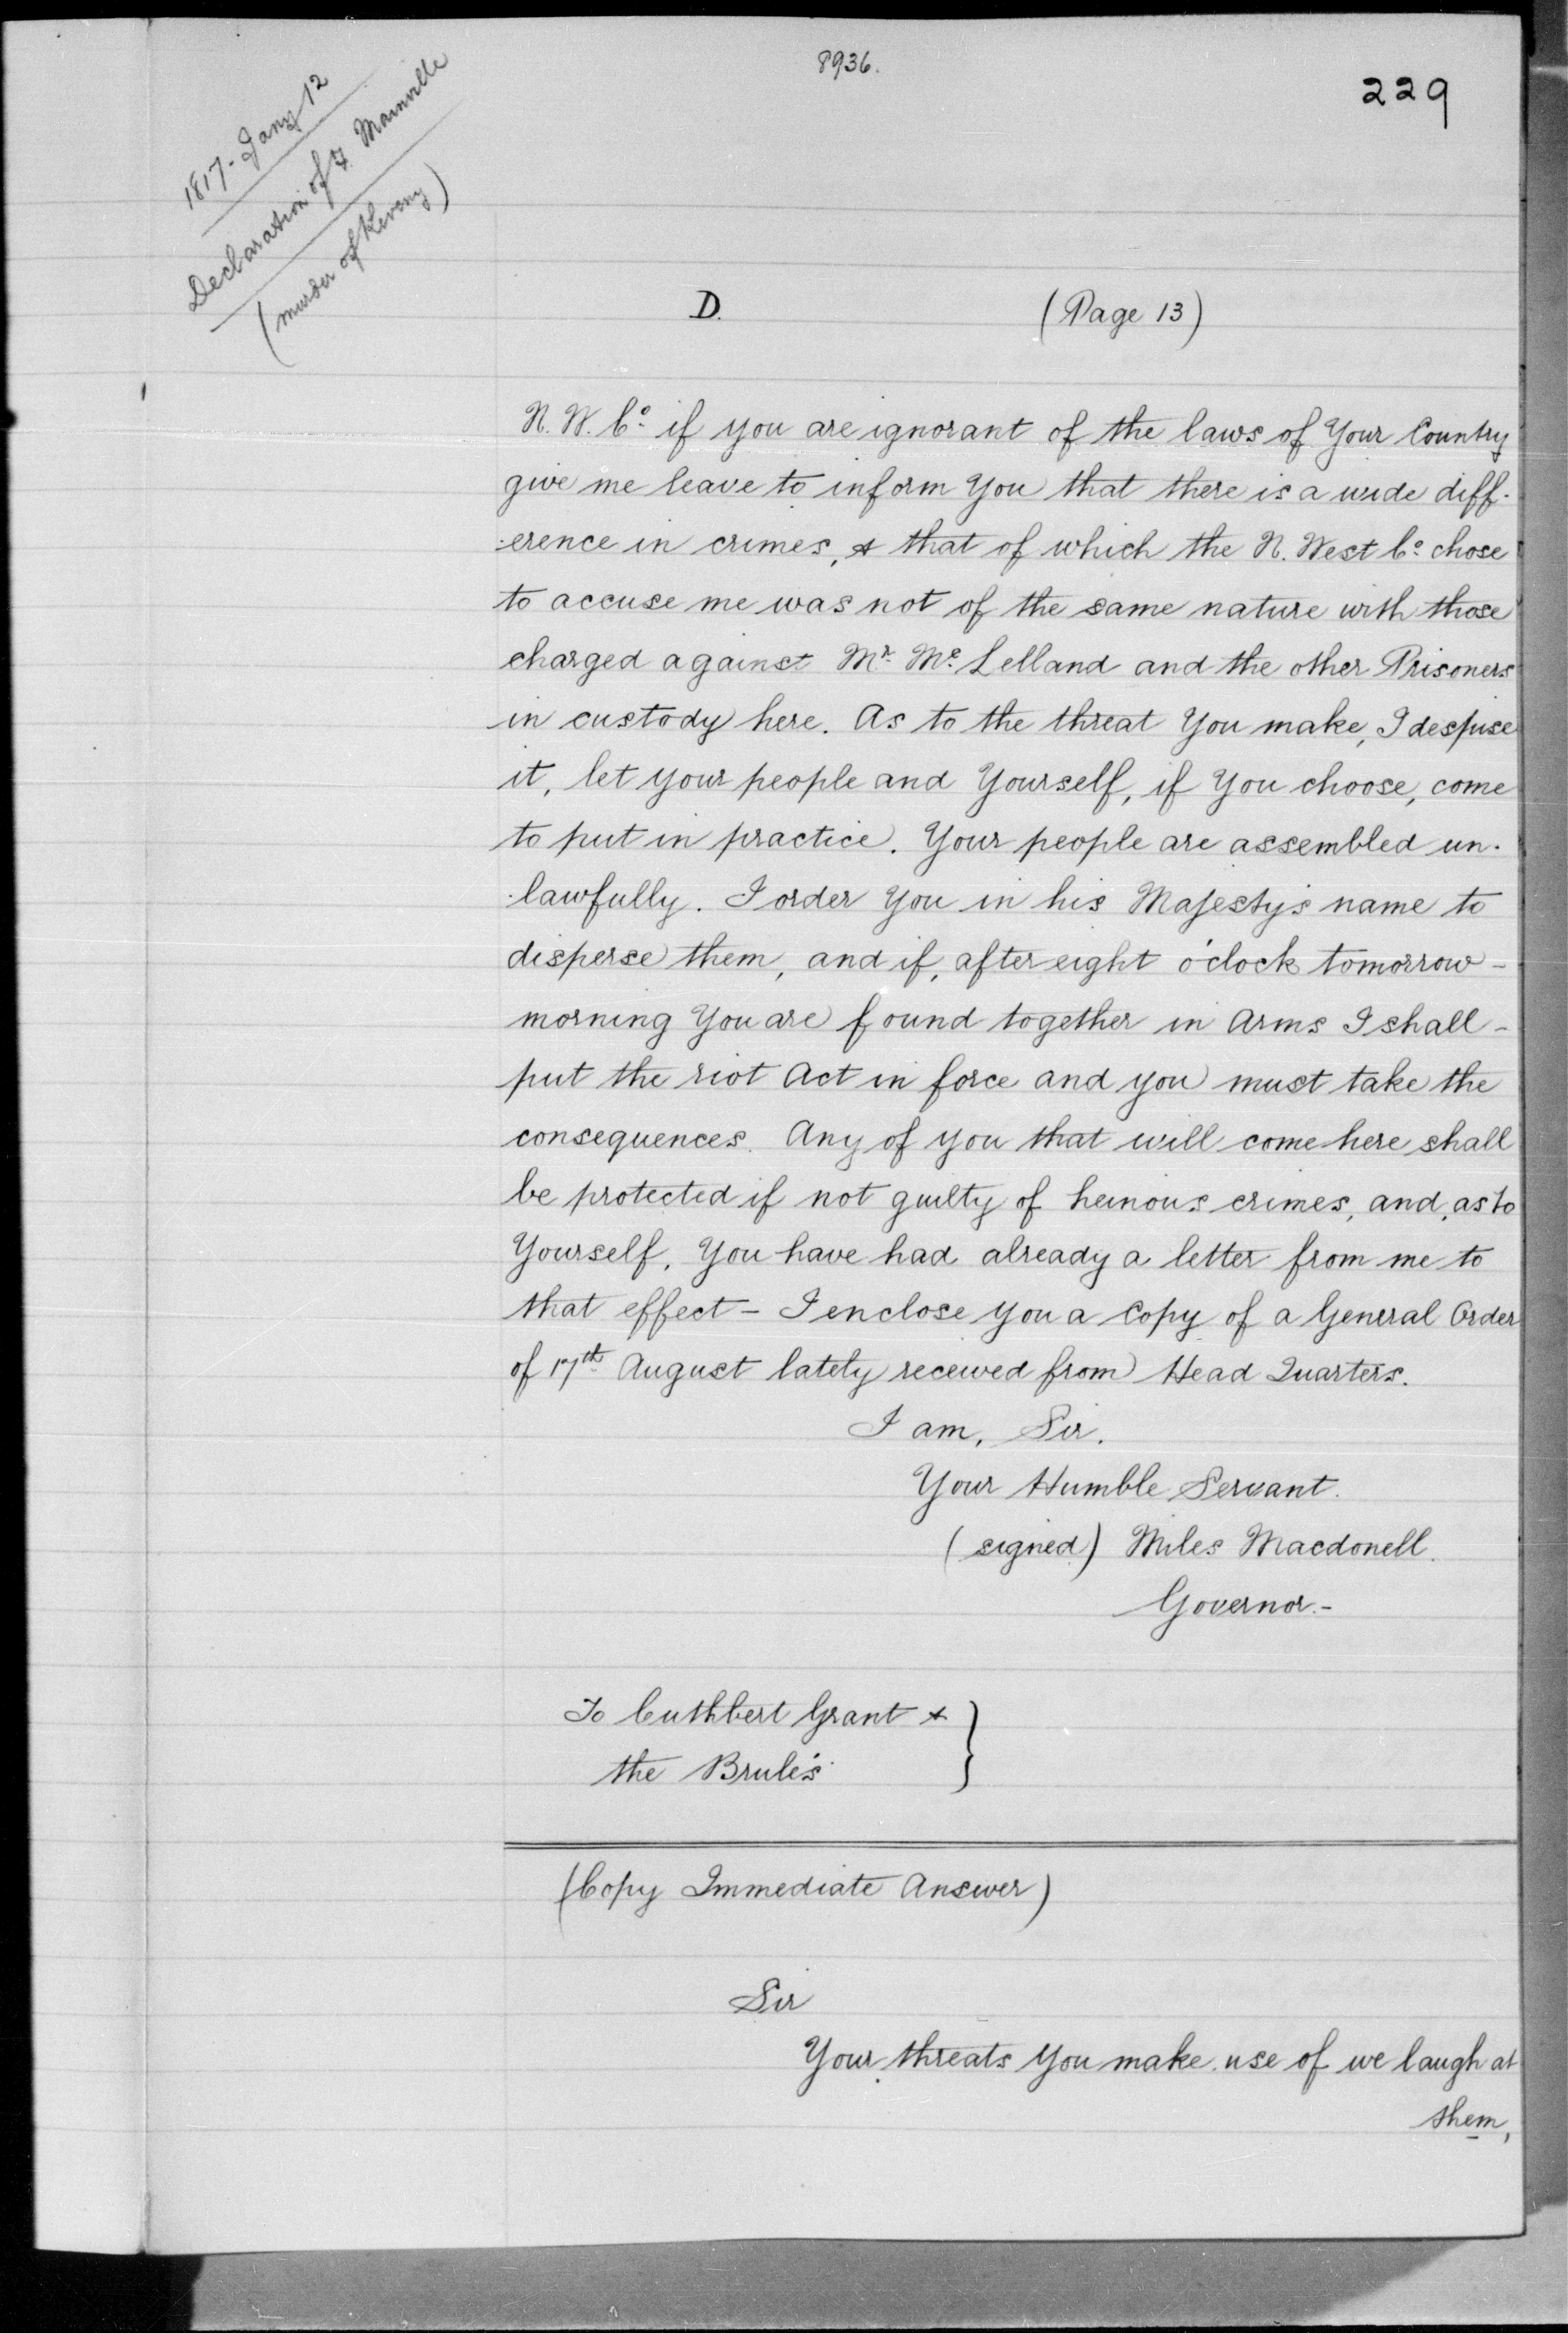 8936.
229
1817 - Jany 12
Declaration of F. Mainville
(murder of Keveny)
D. (Page 13)
N. W. Co. if you are ignorant of the laws of Your Country
give me leave to inform You that there is a wide diff-
-erence in crimes, & that of which the N. West Co. chose
to accuse me was not of the same nature with those
charged against Mr. Mc. Lelland and the other Prisoners
in custody here. As to the threat You make, I despise
it, let your people and Yourself, if You choose, come
to put in practice. Your people are assembled un-
-lawfully. I order You in his Majesty's name to
disperse them, and if, after eight o'clock tomorrow -
morning You are found together in Arms I shall -
put the riot Act in force and you must take the
consequences. Any of you that will come here shall
be protected if not guilty of heinous crimes, and, as to
Yourself, You have had already a letter from me to
that effect - I enclose you a Copy of a General Order
of 17th August lately received from Head Quarters.
I am, Sir.
Your Humble Servant.
(signed) Miles Macdonell.
Governor.-
To Cuthbert Grant & }
the Brulés
(Copy Immediate Answer)
Sir
Your threats You make use of we laugh at
them,